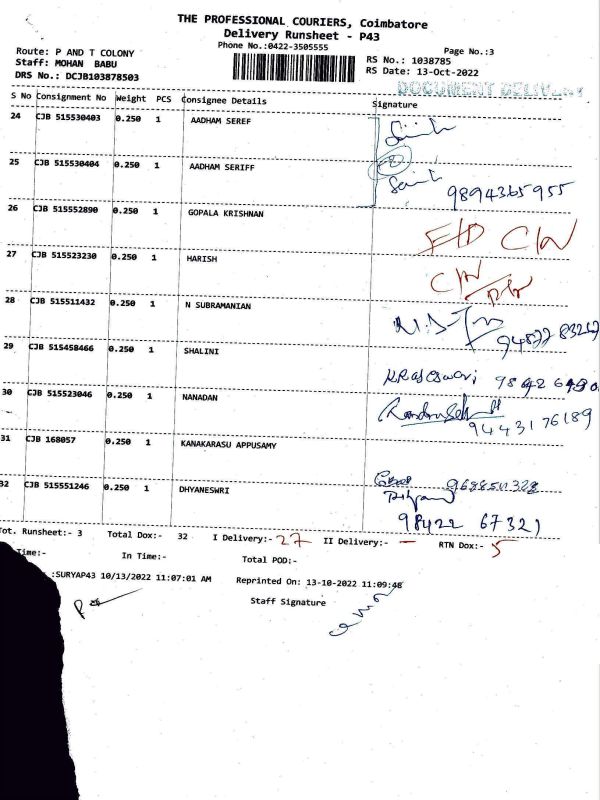 THE PROFESSIONAL COURIERS, Coimbatore
Delivery Runsheet - P43
Phone No.:0422-3505555
Page No.:3
Route: P AND T COLONY
Staff: MOHAN BABU
DRS No.: DCJB103878503
RS No.: 1038785
RS Date: 13-Oct-2022
DOCUMENT DELIVERY
S No Consignment No Weight PCS Consignee Details Signature
24 CJB 515530403 0.250 1 AADHAM SEREF
25 CJB 515530404 0.250 1 AADHAM SERIFF 9894365955
26 CJB 515552890 0.250 1 GOPALA KRISHNAN
27 CJB 515523230 0.250 1 HARISH
28 CJB 515511432 0.250 1 N SUBRAMANIAN
29 CJB 515458466 0.250 1 SHALINI
30 CJB 515523046 0.250 1 NANADAN 9443176189
31 CJB 168057 0.250 1 KANAKARASU APPUSAMY
32 CJB 515551246 0.250 1 DHYANESWRI
98422 67321
Tot. Runsheet:- 3 Total Dox:- 32 I Delivery:- 27 II Delivery:- — RTN Dox:- 5
Time:- In Time:- Total POD:-
:SURYAP43 10/13/2022 11:07:01 AM Reprinted On: 13-10-2022 11:09:48
Staff Signature